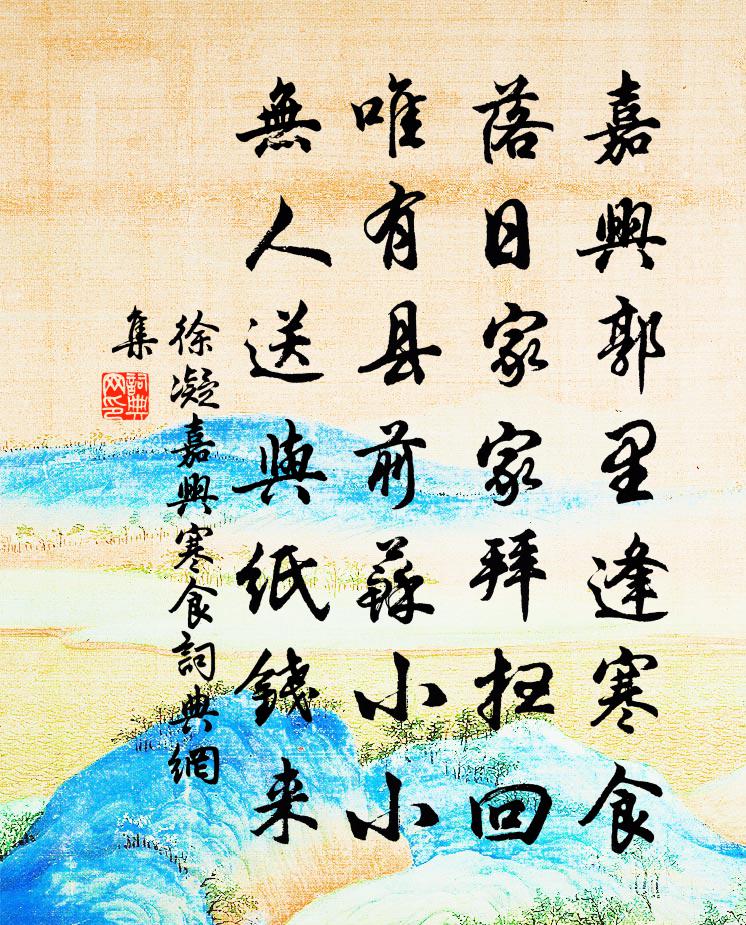 嘉興郭里逢寒食
落日家家拜扫回
唯有县前蘇小小
無人送與紙錢来
徐凝嘉興寒食詞典網
集
詞典
网印